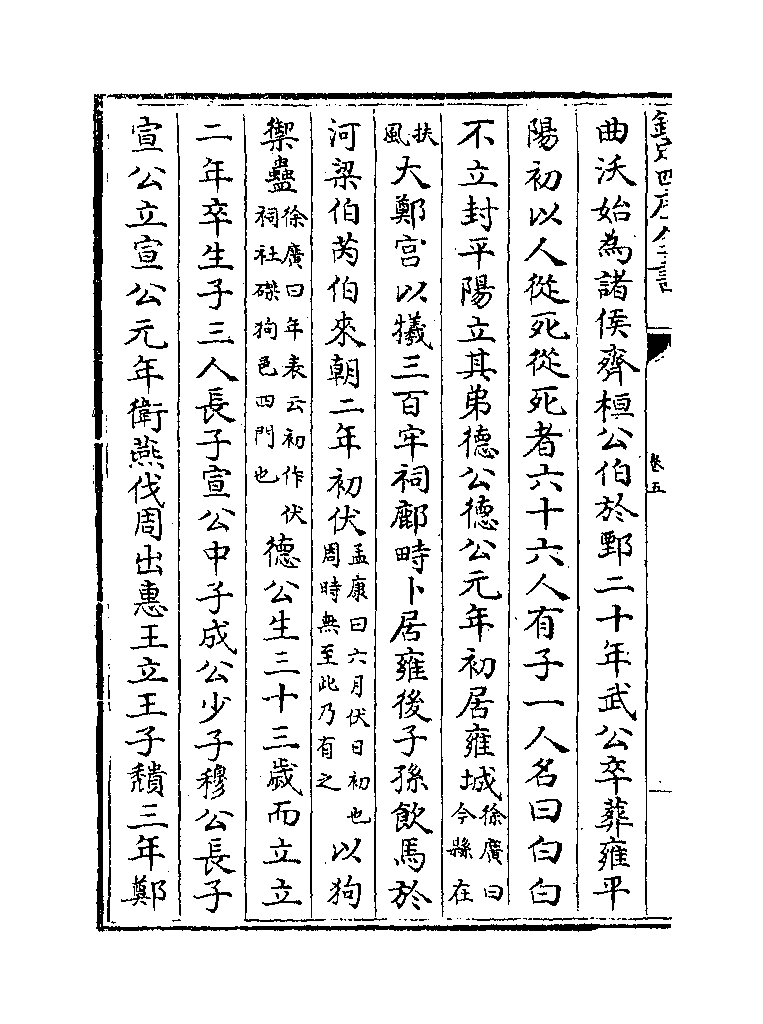 欽定四庫全書
卷五
曲沃始為諸侯齊桓公伯於鄄二十年武公卒葬雍平
陽初以人從死從死者六十六人有子一人名曰白白
不立封平陽立其弟德公德公元年初居雍城徐廣曰今縣在
扶風大鄭宫以犧三百牢祠鄜畤卜居雍後子孫飲馬於
河梁伯芮伯來朝二年初伏孟康曰六月伏日初也周時無至此乃有之以狗
禦蠱徐廣曰年表云初作伏祠社磔狗邑四門也德公生三十三歲而立立
二年卒生子三人長子宣公中子成公少子穆公長子
宣公立宣公元年衛燕伐周出惠王立王子穨三年鄭